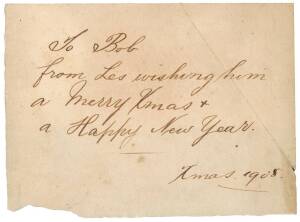 To Bob
from Les wishing him
a Merry Xmas +
a Happy New Year.
Xmas. 1908.